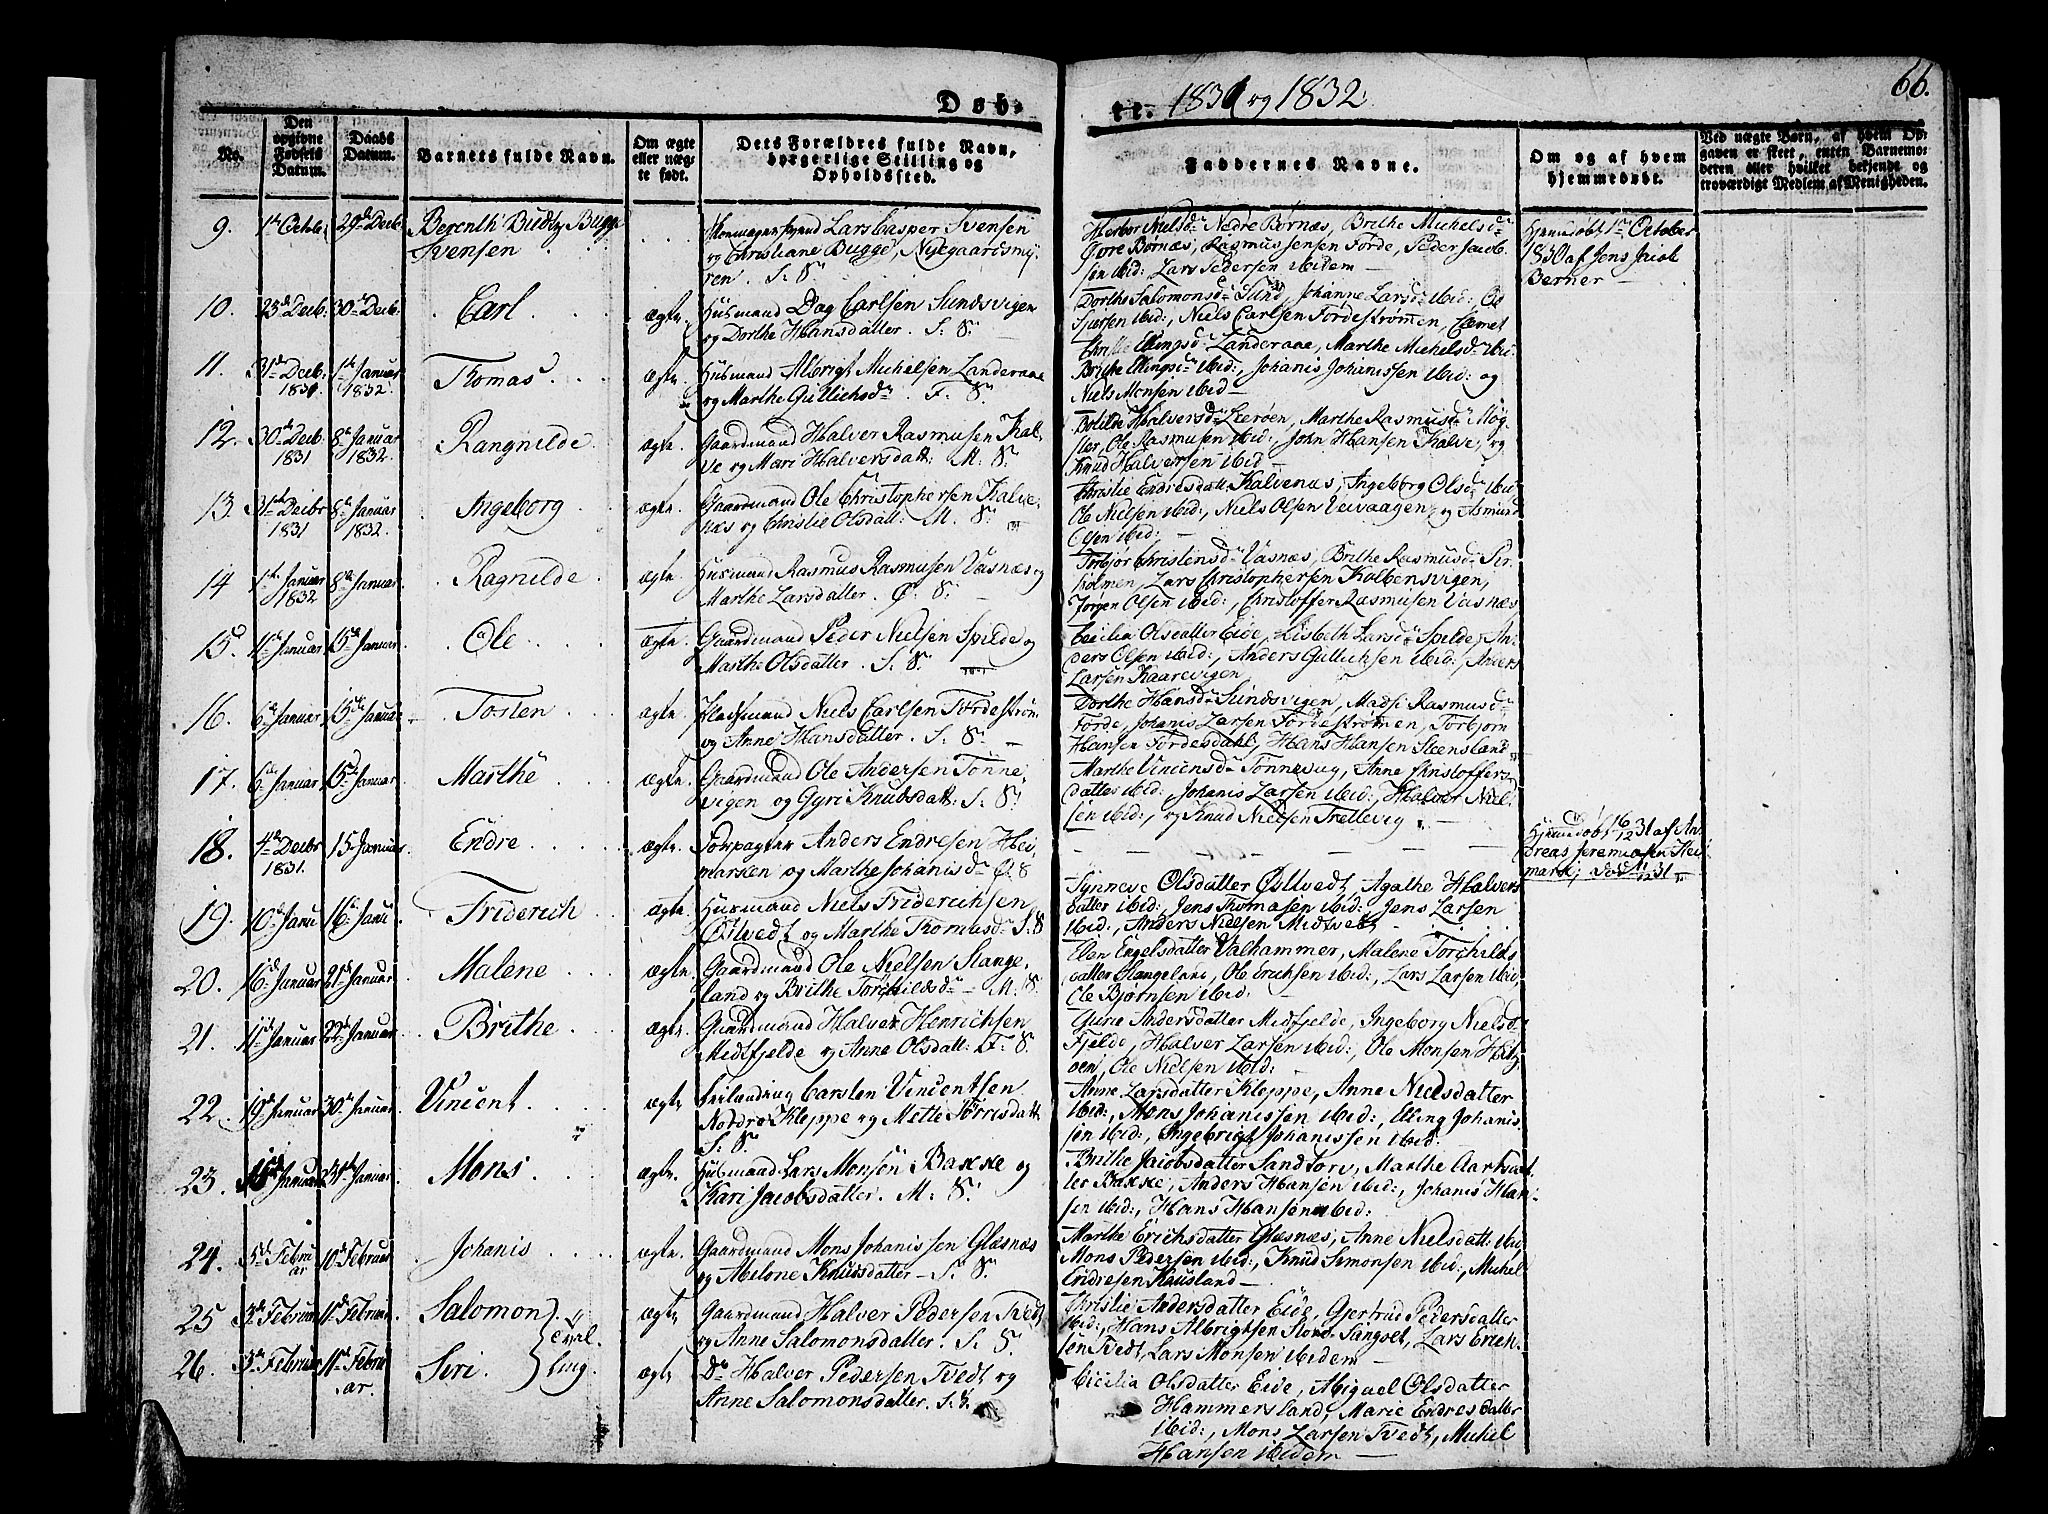 Døb- te. 1831 og 1832. 66.
No.
Den opgivne Fødsels Datum.
Daabs Datum.
Barnets fulde Navn.
Om ægte eller uægte født.
Dets Forældres fulde Navn, borgerlige Stilling og Opholdssted.
Faddernes Navne.
Om og af hvem hjemmedøbt.
Ved uægte Børn, af hvem Opgaven er skeet, enten Barnemoderen eller hvilket bekjendt og troværdigt Medlem af Menigheden.
9. 29de Decb. Berenth Budtz Bugge
Svensen
Lars Casper Svensen
og Christiane Bugge, Nyegaardsmy-
ren. S: S.
Herbor Nielsdr Nedre Børnæs, Brithe Michelsdr
Øvre Børnæs, Rasmus Jensen Førde, Peder Jacob-
sen ibid:, Lars Pedersen ibidem
Hjemmedøbt 1ste October
1830 af Jens Jacob
Berner
10. 23de Decb. 30te Decb. Carl ægte. Husmand Dag Carlsen Sundsvigen
og Dorthe Hansdatter. S: S.
Dorthe Salomonsdr Sund, Johanne Larsdr ibid:
ibid:, Niels Carlsen Førdestrømmen,
11. 31te Decb. 1831. 1ste Januar 1832. Thomas ægte. Husmand Albrigt Michelsen Landeraae
og Marthe Gullichsdr. F. S.
Christie Ellingsdr Landeraae, Marthe Michelsdr ibid:
Brithe Ellingsdr ibid:, Johanis Johanissen ibid: og
Niels Monsen ibid
12. 30te Decb. 1831 8de Januar 1832. Rangnilde ægte. Gaardmand Halver Rasmusen Kal-
ve og Mari Halversdatt: M. S.
Bolilde Halversdr Leerøen, Marthe Rasmusdr Møg-
ster, Ole Rasmusen ibid:, John Hansen Kalve, og
Knud Halversen ibid
13. 31te Decbr 1831 8de Januar 1832. Ingeborg ægte. Gaardmand Ole Christophersen Kalve-
næs og Christie Olsdatt: M. S.
Christie Endresdatt: Kalvenæs, Ingeborg Olsdr ibid:
Ole Nielsen ibid:, Niels Olsen Veivaagen, og Asmund
Olsen ibid:
14 1ste Januar 1832 8de Januar Ragnilde ægte. Husmand Rasmus Rasmusen Vasnæs og
Marthe Larsdatter. Ø. S.
Torbjør Christensdr Vasnæs, Brithe Rasmusdr
holmen, Lars Christophersen Kolbensvigen,
Jørgen Olsen ibid:, Christoffer Rasmusen Vasnæs
15. 11te Januar 15de Januar Ole ægte. Gaardmand Peder Nielsen Spilde og
Marthe Olsdatter. S. S.
Cecilia Olsdatter Eide, Lisbeth Larsdr Spilde, An-
ders Olsen ibid:, Anders Gullichsen ibid:, Anders
Larsen Kaarevigen
16. 6te Januar 15de Januar Tosten ægte. Pladsmand Niels Carlsen Førdestrøm.
og Anne Hansdatter. S. S.
Dorthe Hansdr Sundsvigen, Madsi Rasmusdr
Førde, Johanis Larsen Førdestrømen, Torbjørn
Hansen Førdesdahl, Hans Hansen Steensland
17. 6te Januar 15de Januar Marthe ægte. Gaardmand Ole Andersen Tønne-
vigen og Gyri Knudsdatt: S. S.
Marthe Vincensdr Tønnevig, Anne Christoffers-
datter ibid:, Johanis Larsen ibid:, Halver Niel-
sen ibid:, og Knud Nielsen Trellevig
18. 4de Decbr 1831. 15 Januar Endre ægte. Forpagter Anders Endresen Hei-
marken og Marthe Johanisdr Ø. S
Hjemmedøbt 16/12 31 af An-
dreas Jeremiasen Hei-
mark; død 12 31
19. 10de Janu 16de Janu Friderich ægte. Husmand Niels Friderichsen
Østvedt og Marthe Thomasdr S. S
Synneve Olsdatter Østvedt, Agathe Halvers-
datter ibid:, Jens Thomasen ibid:, Jens Larsen
ibid:, Anders Nielsen Midtvedt
20. 16de Januar 21de Januar Malene ægte. Gaardmand Ole Nielsen Stange-
land og Brithe Torchildsdr M. S.
Elen Engelsdatter Valhammer, Malene Torchilds-
datter Stangeland, Ole Erichsen ibid:, Lars Larsen ibid:
Ole Bjørnsen ibid:
21. 11te Januar 22de Januar Brithe ægte. Gaardmand Halver Henrichsen
Medtfjelde og Anne Olsdatt: F. S.
Gurie Andersdatter Midfjelde, Ingeborg Nielsdr
Fjelde, Halver Larsen ibid:, Ole Monsen
øen, Ole Nielsen ibid:
22. 19de Januar 30te Januar Vincent ægte Carsten Vincentsen
Nordre Kleppe og Mette Tørrisdatt.
S. S.
Anne Larsdatter Kleppe, Anne Nielsdatter
ibid:, Mons Johanissen ibid:, Elling Johanis-
sen ibid:, Ingebrigt Johanissen ibid:
23. Januar 31te Januar Mons ægte. Husmand Lars Monsen Bakke og
Kari Jacobsdatter. M. S.
Brithe Jacobsdatter Sandtorv, Marthe
ter Bakke, Anders Hansen ibid:, Johanis Han-
sen ibid:, Hans Hansen ibid:
24. 5te Februar 10de Februar Johanis ægte. Gaardmand Mons Johanissen Glæsnæs
og Abelone Knudsdatter S. S.
Marthe Erichsdatter Glæsnæs, Anne Nielsdatt: ibid
Mons Pedersen ibid:, Knud Simonsen ibid:, Michel
Endresen Kausland
25 3de Februar 11te Februar Salomon ægte Gaardmand Halver Pedersen Tvedt
og Anne Salomonsdatter. S. S.
Christie Andersdatter Eide, Gjertrud Pedersdatter
ibid:, Hans Albrigtsen Store Sangolt, Lars Erich-
sen Tvedt, Lars Monsen ibidem
26. 3de Februar 11te Februar. Siri. ægte Do Halver Pedersen Tvedt og
Anne Salomonsdatter. S. S.
Cicilia Olsdatter Eide, Abiguel Olsdatter
Hammersland, Marie Endresdatter
ibid:, Mons Larsen Tvedt, Michel
Hansen ibidem